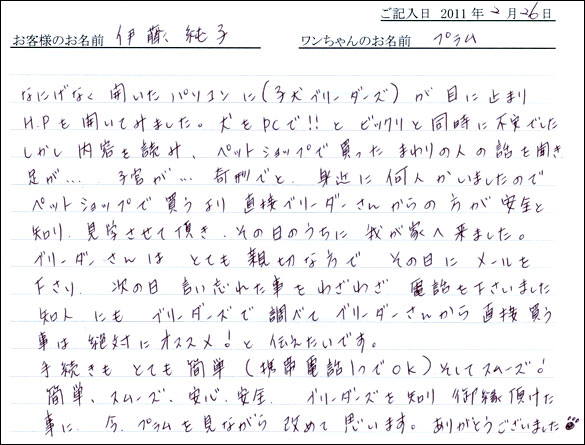 ご記入日 2011年2月26日
お客様のお名前 伊藤、純子 ワンちゃんのお名前 プラム
なにげなく開いたパソコンに(子犬ブリーダーズ)が目に止まり
H.Pを開いてみました。犬をPCで!!とビックリと同時に不安でした
しかし内容を読み、ペットショップで買ったまわりの人の話を聞き
足が.... 子宮が... 奇形でと、身近に何人かいましたので
ペットショップで買うより直接ブリーダーさんからの方が安全と
知り、見学させて頂き、その日のうちに我が家へ来ました。
ブリーダーさんはとても親切な方でその日にメールを
下さり、次の日言い忘れた事をわざわざ電話を下さいました
知人にもブリーダーズで調べてブリーダーさんから直接買う
事は絶対にオススメ!と伝えたいです。
手続きもとても簡単(携帯電話1つでOK)そしてスムーズ!
簡単、スムーズ、安心、安全、ブリーダーズを知り御縁頂けた
事に、今、プラムを見ながら改めて思います。ありがとうございました